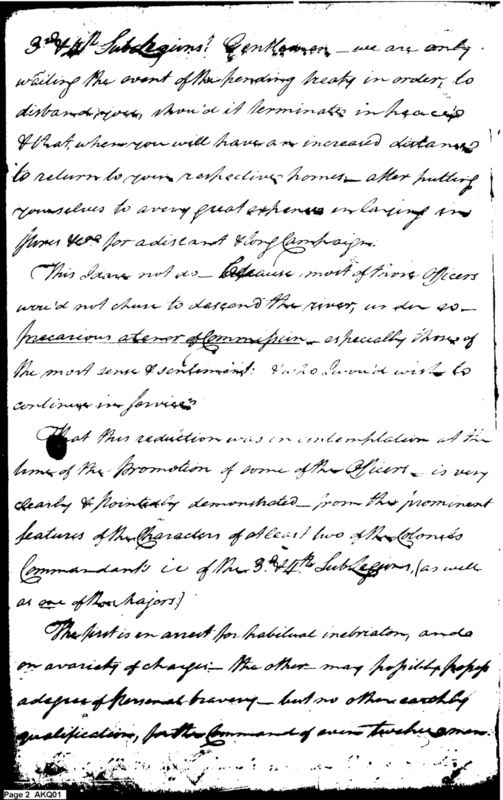 3rd & 4th Sub Legions! Gentlemen – we are only
waiting the event of the pending treaty in order, to
disband you, shou'd it terminate in peace
& that, when you will have an increased distance
to return to your respective homes – after putting
yourselves to a very great expence in laying in
stores &ca for a distant & long Campaign.
This I dare not do – because most of those Officers
wou'd not chuse to descend the river, under so
precarious a tenor of Commission – especially those of
the most sense & sentiment: & who I wou'd wish to
continue in service
That this reduction was in contemplation at the
time of the Promotion of some of the Officers – is very
clearly & pointedly demonstrated – from the prominent
features of the Characters of at least two of the Colonels
Commandants ie of the 3d & 4th Sub Legions, (as well
as one of the Majors)
The first is in arrest for habitual inebriation, and
on a variety of charges – the other may possibly possess
a degree of personal bravery – but no other earthly
qualification, for the Command of even twelve men.
Page 2 AKQ01